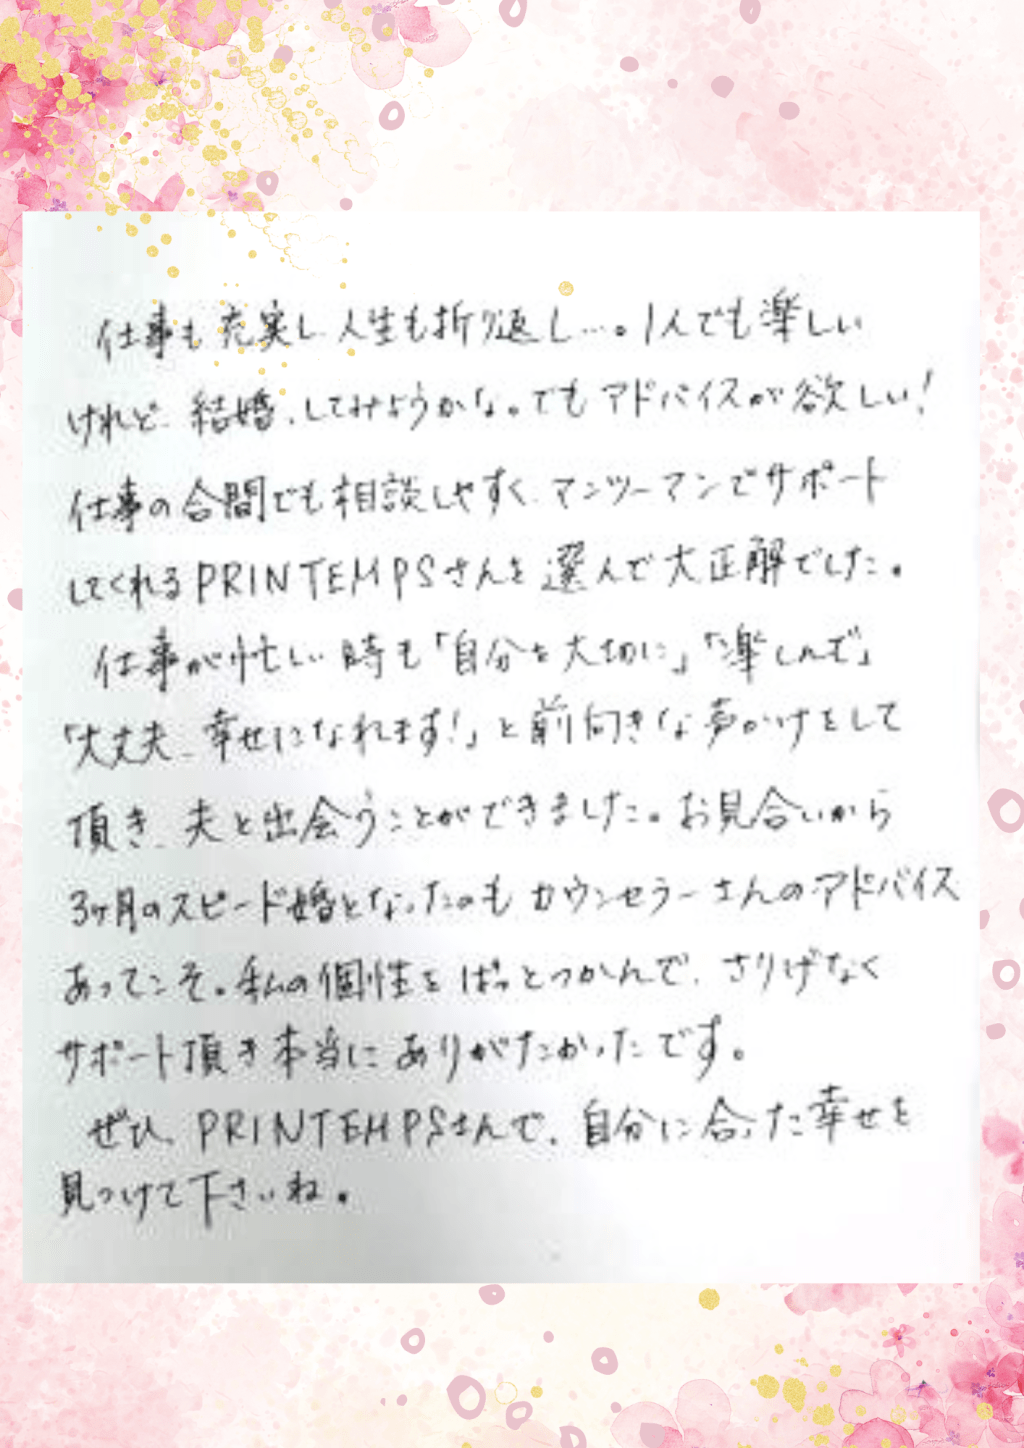 仕事も充実し人生も折り返し…。1人でも楽しい
けれど、結婚、してみようかな。でもアドバイスが欲しい!
仕事の合間でも相談しやすく、マンツーマンでサポート
してくれるPRINTEMPSさんを選んで大正解でした。
仕事が忙しい時も「自分を大切に」「楽しんで」
「大丈夫、幸せになれます!」と前向きな声かけをして
頂き、夫と出会うことができました。お見合いから
3ヶ月のスピード婚となったのもカウンセラーさんのアドバイス
あってこそ。私の個性をぱっとつかんで、さりげなく
サポート頂き本当にありがたかったです。
ぜひ、PRINTEMPSさんで、自分に合った幸せを
見つけて下さいね。